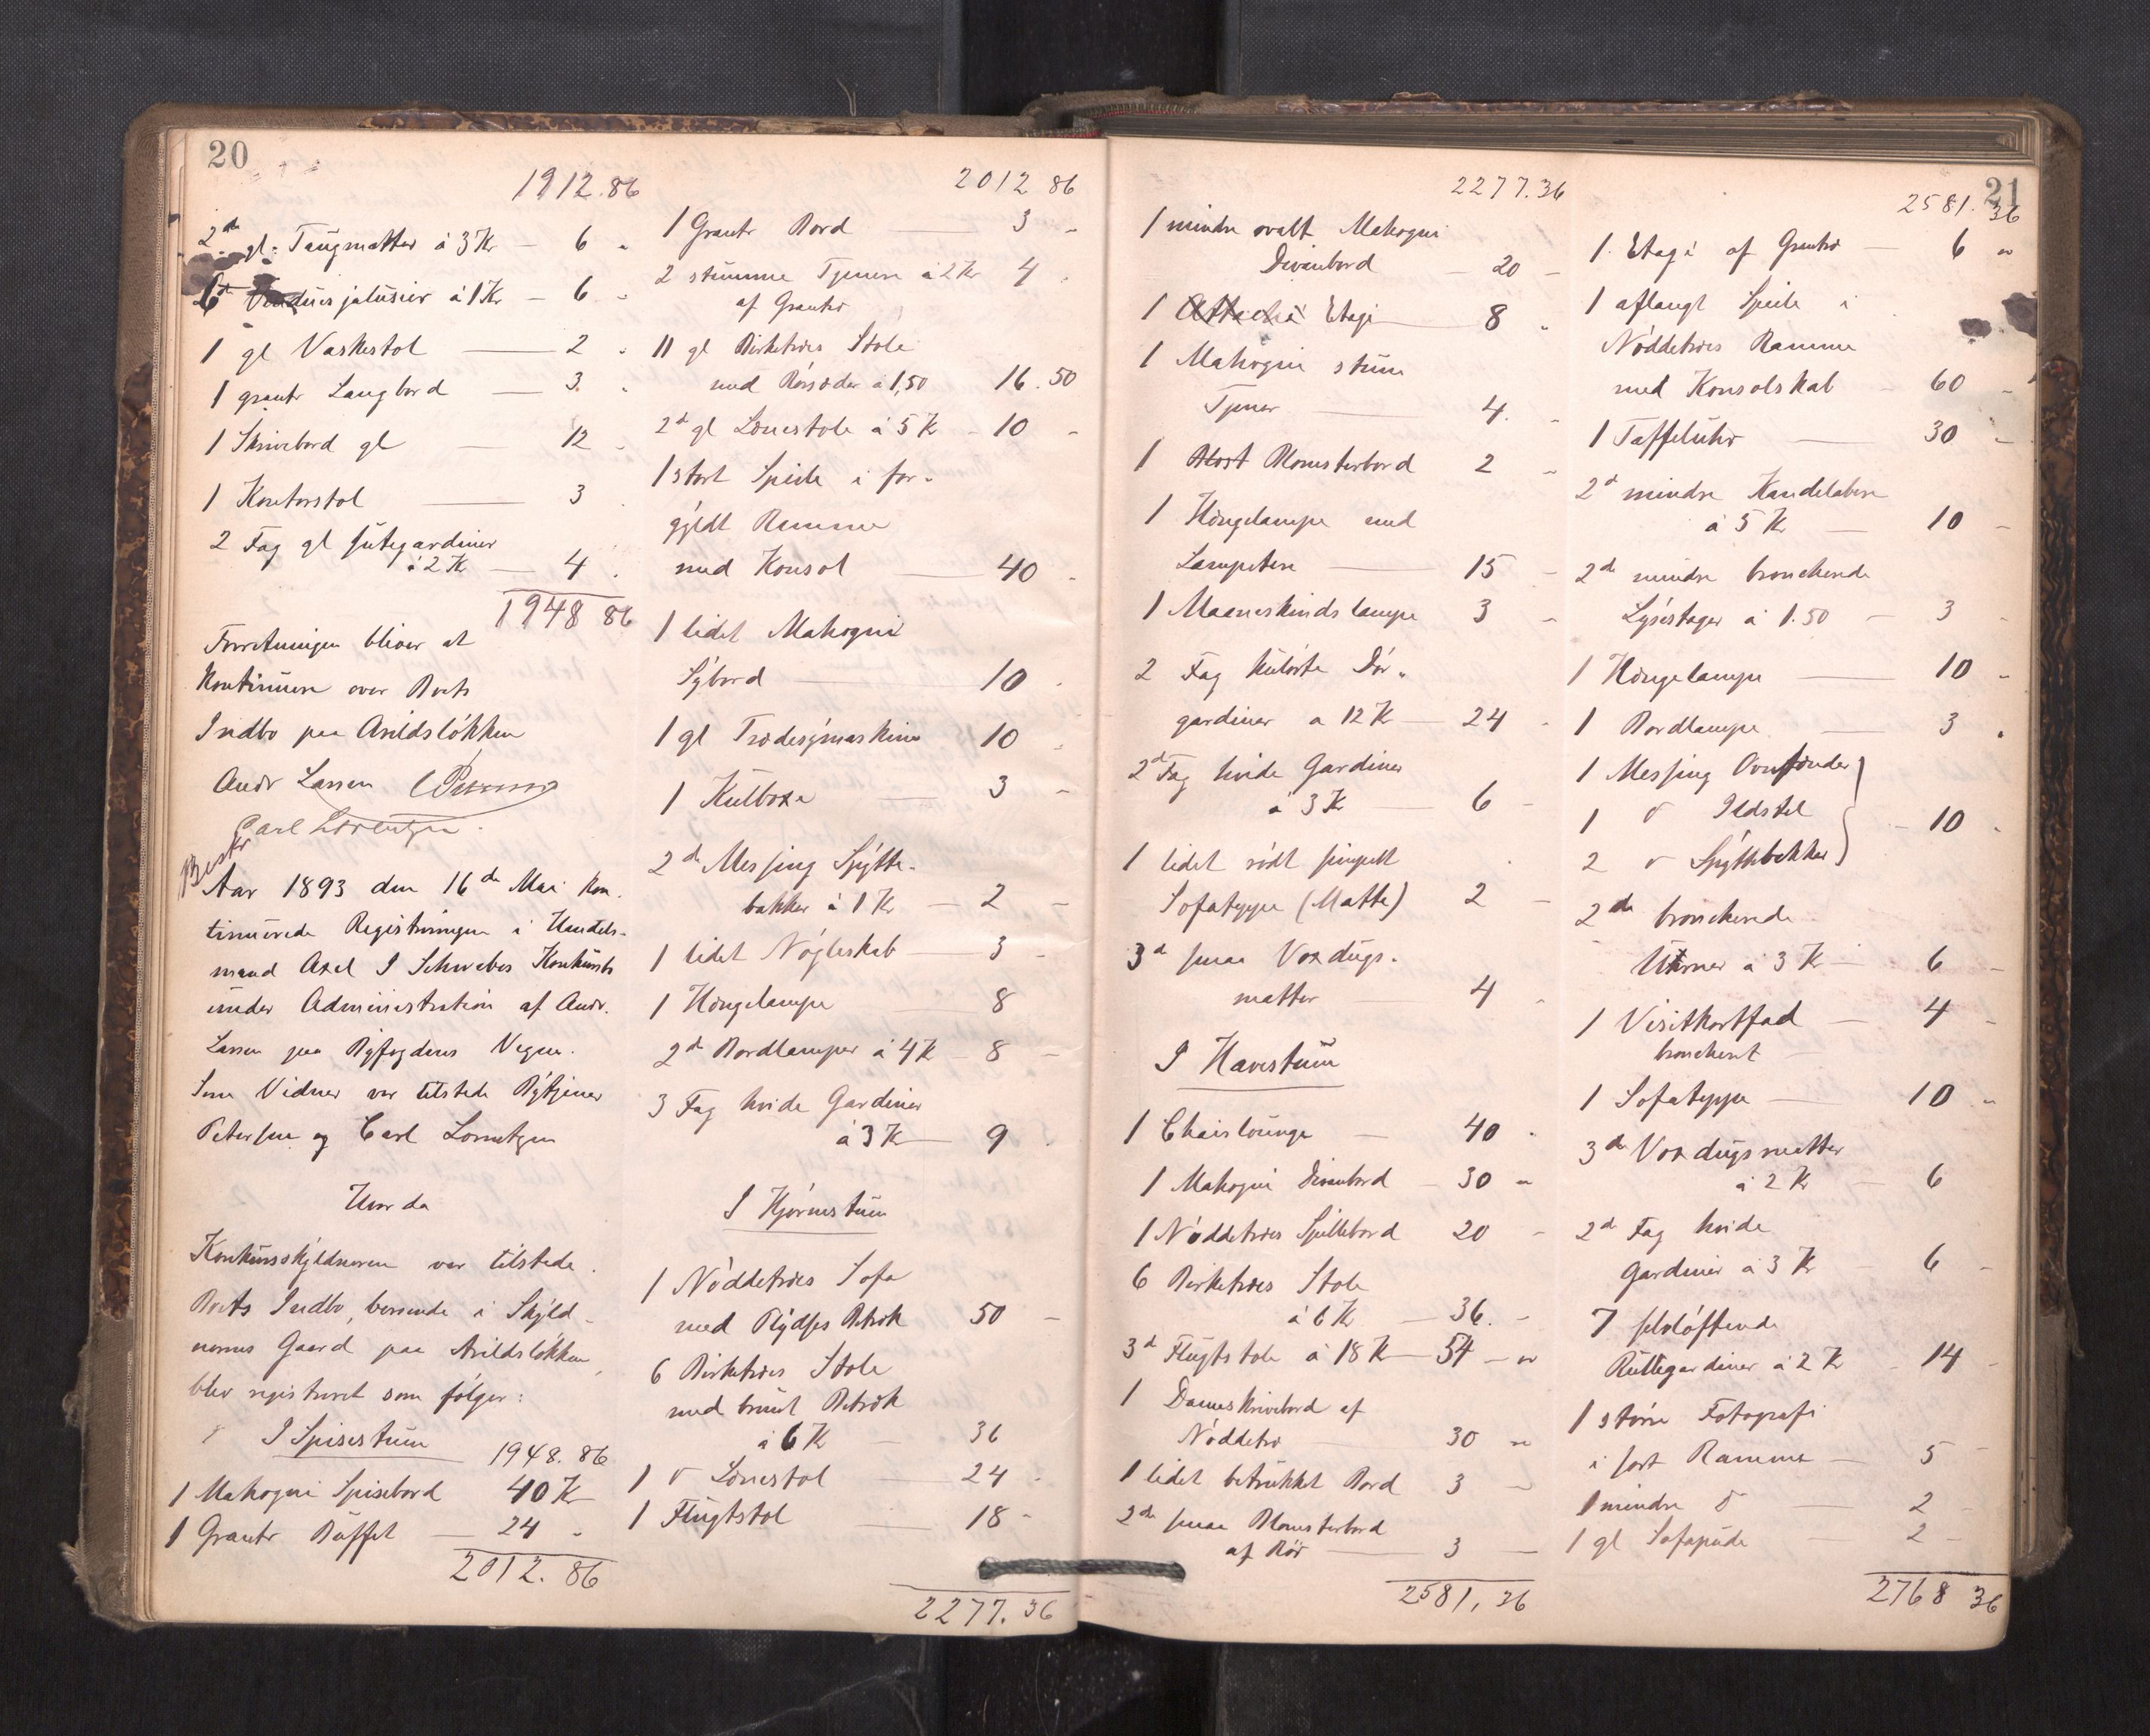 20
1912.86
2de gl: Taugmatter à 3 Kr — 6 "
6de Vinduesjalusier à 1 Kr — 6 "
1 gl Vaskestol — 2 "
1 grantr Langbord — 3 "
1 Skrivebord gl — 12 "
1 Kontorstol — 3
2 Fag gl jutegardiner
à 2 Kr — 4
1948 86
Forretningen bliver at
kontinuere over Boets
Indbo paa Arildsløkken
Andr Larsen
Carl Lorentzen
Aar 1893 den 16de Mai kon-
tinuerede Registreringen i Handels-
mand Axel I Schwebes Konkursbo
under Administration af Andr.
Larsen paa Byfogdens Vegne.
Som Vidner var tilstede Bytjener
Petersen og Carl Lorentzen
Hvor da
Konkursskyldneren var tilstede.
Boets Indbo, beroende i Skyld-
nerens Gaard paa Arildsløkken,
blev registreret som følger:
I Spisestuen 1948.86
1 Mahogni Spisebord 40 Kr
1 Grantr Büffet — 24 "
2012.86
2012 86
1 Grantr Bord — 3 "
2 stumme Tjenere à 2 Kr 4
af Grantræ
11 gl Birketræes Stole
med Rørsæder à 1,50 16.50
2de gl Lænestole à 5 Kr — 10 "
1 stort Speile i for-
gyldt Ramme
med Konsol — 40 "
1 lidet Mahogni
Sybord — 10
1 gl Trædesymaskine 10
1 Kulboxe — 3 "
2de Messing Spytte-
bakker à 1 Kr — 2 "
1 lidet Nøgleskab — 3 "
1 Hængelampe — 8
2de Bordlamper à 4 Kr — 8 "
3 Fag hvide Gardiner
à 3 Kr — 9
I Hjørnestuen
1 Nøddetræes Sofa
med Plydses Betræk 50 "
6 Birketræes Stole
med brunt Betræk
à 6 Kr — 36
1 do Lænestol — 24 "
1 Flugtstol — 18 "
2277.36
21
2277.36
1 mindre ovalt Mahogni
Divanbord — 20 "
1 Etagè — 8 "
1 Mahogni stum
Tjener — 4 "
1 Blost Blomsterbord 2 "
1 Hængelampe med
Lampetere — 15 "
1 Maaneskinds lampe 3 "
2 Fag kulørte Dør-
gardiner a 12 Kr — 24 "
2de Fag hvide Gardiner
à 3 Kr — 6 "
1 lidet rødt
Sofateppe (Matte) 2 "
3de smaa Voxdugs-
matter — 4 "
I Havestuen
1 Chaislounge — 40 "
1 Mahogni Divanbord — 30 "
1 Nøddetræes Spillebord 20 "
6 Birketræes Stole
à 6 Kr — 36. "
3de Flugtstole à 18 Kr — 54 "
1 Dameskrivebord af
Nøddetræ — 30 "
1 lidet betrukket Bord 3 "
2de smaa Blomsterbord
af Rør — 3 —
2581,36
2581.36
1 Etagè af Grantræ — 6 "
1 aflangt Speile i
Nøddetræes Ramme
med Konsolskab — 60 "
1 Taffeluhr — 30 "
2de mindre Kandelabere
à 5 Kr — 10 "
2de mindre broncherede
Lysestager à 1.50 — 3 "
1 Hængelampe — 10 "
1 Bordlampe — 3 "
1 Messing Ovnsfender
1 do Ildstel — 10 "
2 do Spyttebakker
2de broncherede
Urner à 3 Kr — 6 "
1 Visitkortfad — 4 "
broncheret
1 Sofateppe — 10 "
3de Voxdugsmatter
à 2 Kr — 6
2de Fag hvide
Gardiner à 3 Kr — 6 "
7 selvløftende
Rullegardiner à 2 Kr — 14 "
1 større Fotografi
i sort Ramme — 5 "
1 mindre do — 2 "
1 gl Sofapude — 2 "
2768 36